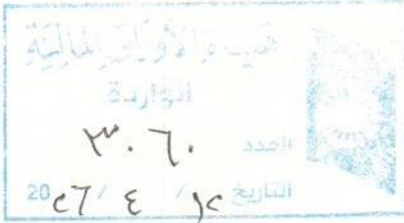 هيئة الأوراق المالية
الواردة
العدد ٣٠٦٠
التاريخ ١٢ / ٤ / ٢٦ 20